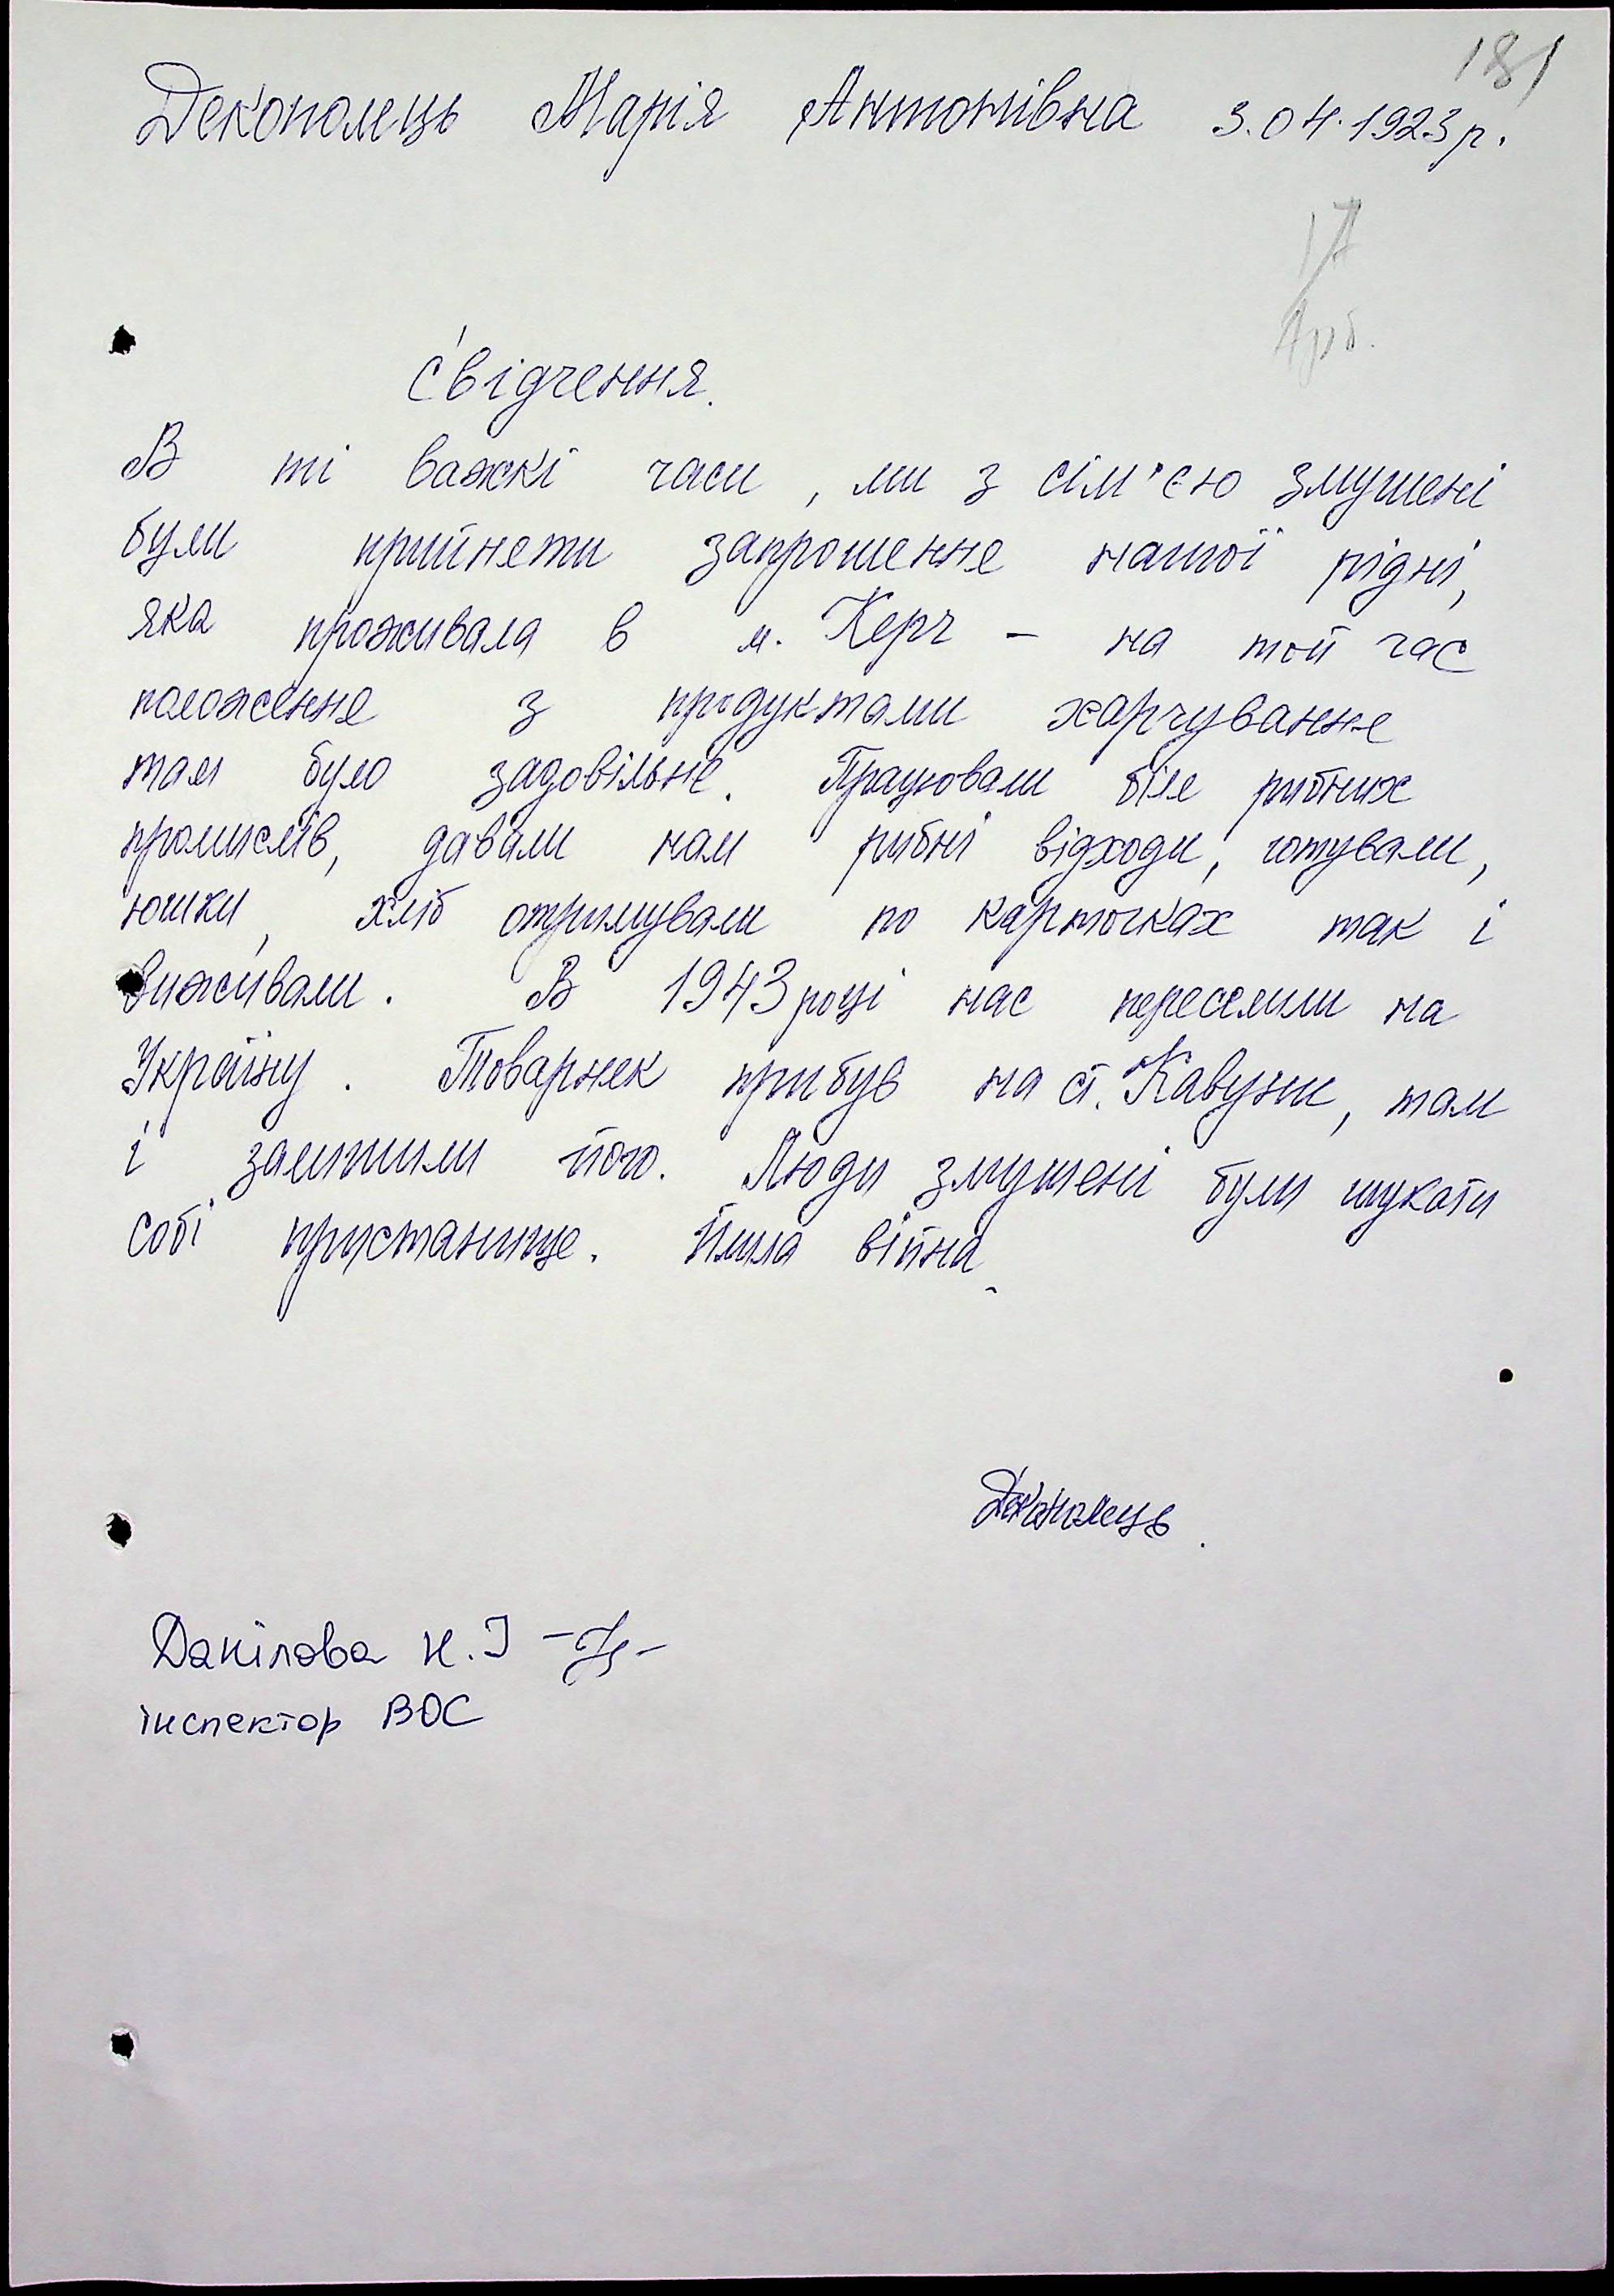 181
Декополець Марія Антонівна 3.04.1923р.
17
Свідчення.
В ті важкі часи, ми з сім'єю змушені
були прийняти запрошення нашої рідні,
яка проживала в м. Керч - на той час
положення з продуктами харчування
там було задовільне. Працювали біля рибних
промислів, давали нам рибні відходи, готували,
юшки, хліб отримували по карточках так і
виживали. В 1943 році нас переселили на
Україну. Товарняк прибув на ст. Кавуни, там
і залишили його. Люди змушені були шукати
собі пристанище. Йшла війна.
Декополець.
Данілова Н.І
інспектор ВОС